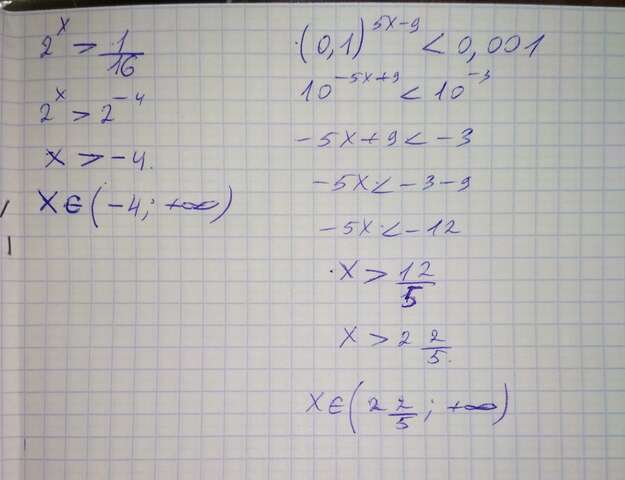 2^x > 1/16
2^x > 2^-4
x > -4.
x ∈ (-4; +∞)
(0,1)^5x-9 < 0,001
10^-5x+9 < 10^-3
-5x+9 < -3
-5x < -3-9
-5x < -12
x > 12/5
x > 2 2/5.
x ∈ (2 2/5; +∞)